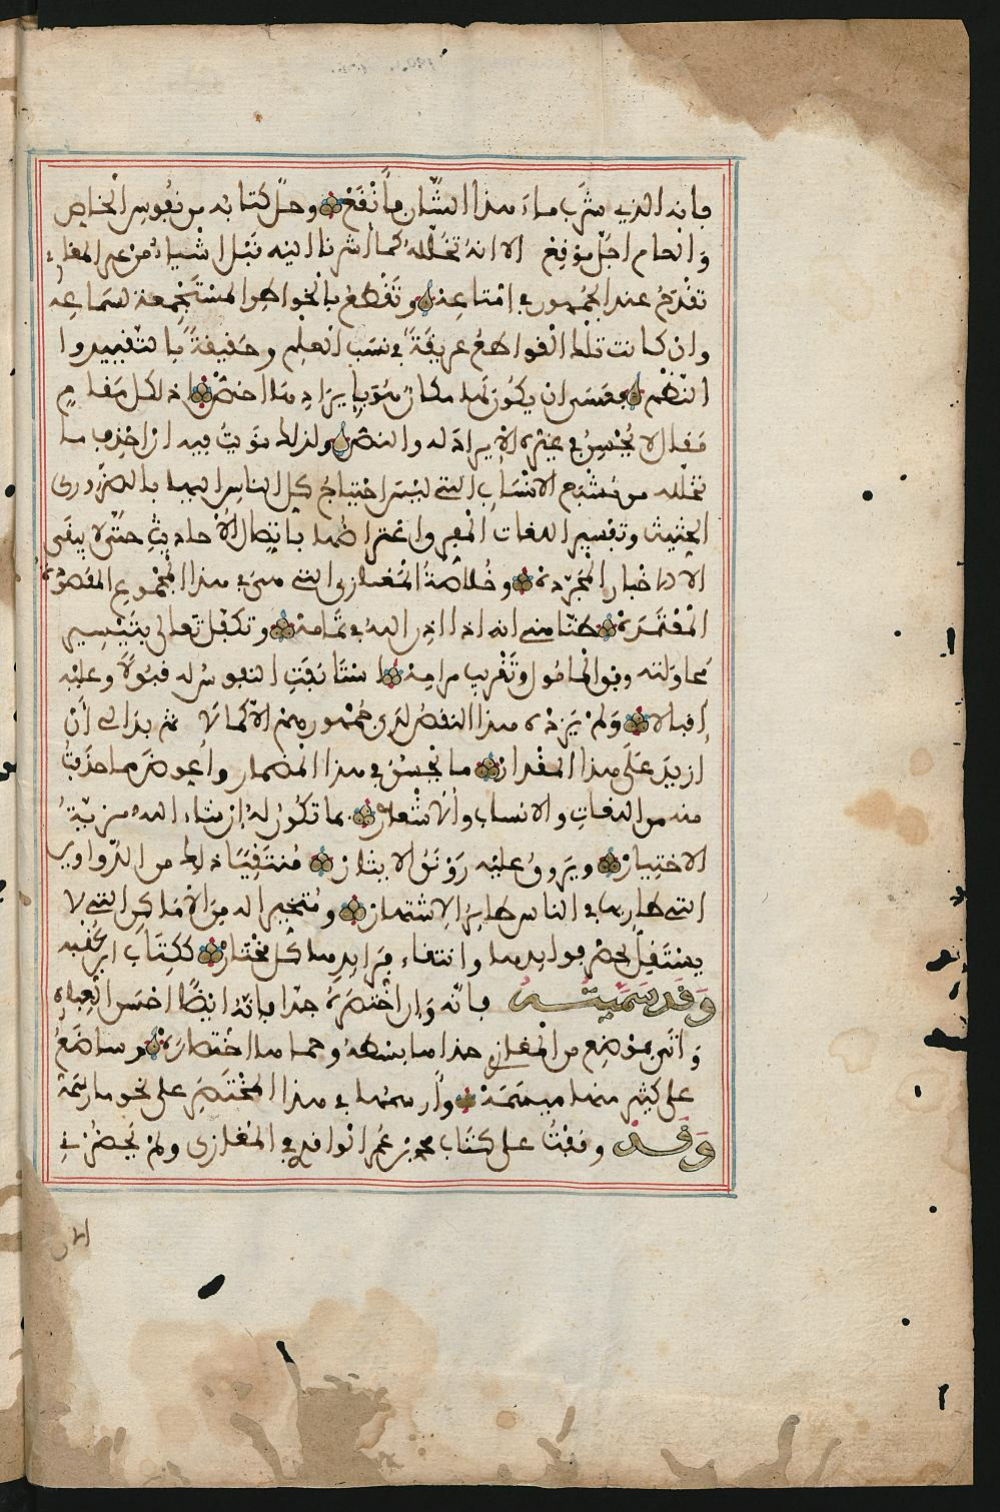 فإنه الذي شرب ماء هذا الشان فأنقع وحل كتابه من نفوس الخاص
والعام اجل موقع الا انه تخلله كما اشرنا اليه قبل اشياء من غير المغازي
تقدح عند الجمهور في امتاعه وتقطع بالخواطر المستجمعة لسماعه
وان كانت تلك القواطع عريقة في نسب العلم وحقيقة بالتقييد و
النظم فعسى ان يكون لها مكان هو بإيراد ها اخص اذ لكل مقام
مقال لا يحسن في غيره الايراد له والنص ولذلك نويت فيه ان احذف ما
تخلله من مشبع الانساب التي ليس احتياج كل الناس اليها بالضروري
الحثيث وتفسير اللغات المفرد اعتراضها باتصال الأحاديث حتى لا يبقى
الا الاخبار المجردة وخلاصة المغازي التي هي في هذا المجموع المقصودة
المعتمدة ظنا مني انه اذا اذن الله في تمامه وتكفل تعالى بتيسير
محاولته وفق المامول وتقريب مرامه استانفت النفوس له قبولا وعليه
إقبالا ولم يزده هذا النقص لدى جمهورهم الا كمالا ثم بدا لي أن
ازيد على هذا المقدار ما يحسن في هذا المضمار واعوض مما حذفت
منه من اللغات والانساب والاشعار بما تكون له إن شاء الله مزية
الاختيار ويروق عليه رونق الايثار منتقيا ذلك من الدواوين
التي طار بها في الناس طائر الاشتهار ومتخيرا له من الاماكن التي لا
يستقل بحصر فوائدها وانتقاء فرايدها كل مختار ككتاب ابن عقبة
وقد سميته فإنه وان اختصره جدا فإنه ايضا احسن العبارة
واتى بموضع من المغازي حذا ما بسطه وحما ها اختصاره وساضع
على كثير منها ميسمه وارسمها في هذا المختصر على نحو ما رسمه
وقد وقفت على كتاب محمد بن عمر الواقدي في المغازي ولم يحضرني
الان